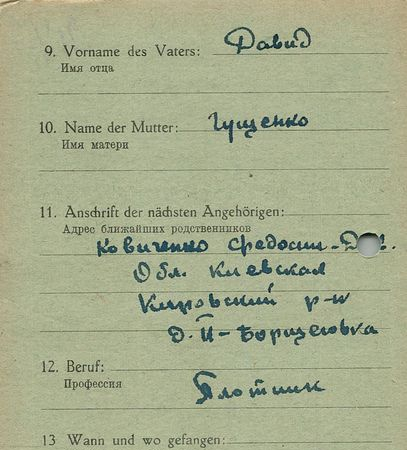 9. Vorname des Vaters: Давид
Имя отца
10. Name der Mutter: Гущенко
Имя матери
11. Anschrift der nächsten Angehörigen:
Адрес ближайших родственников
Ковиченко
Обл. Киевская
р-н
Д. П-Борщеговка
12. Beruf:
Профессия
Плотник
13 Wann und wo gefangen: